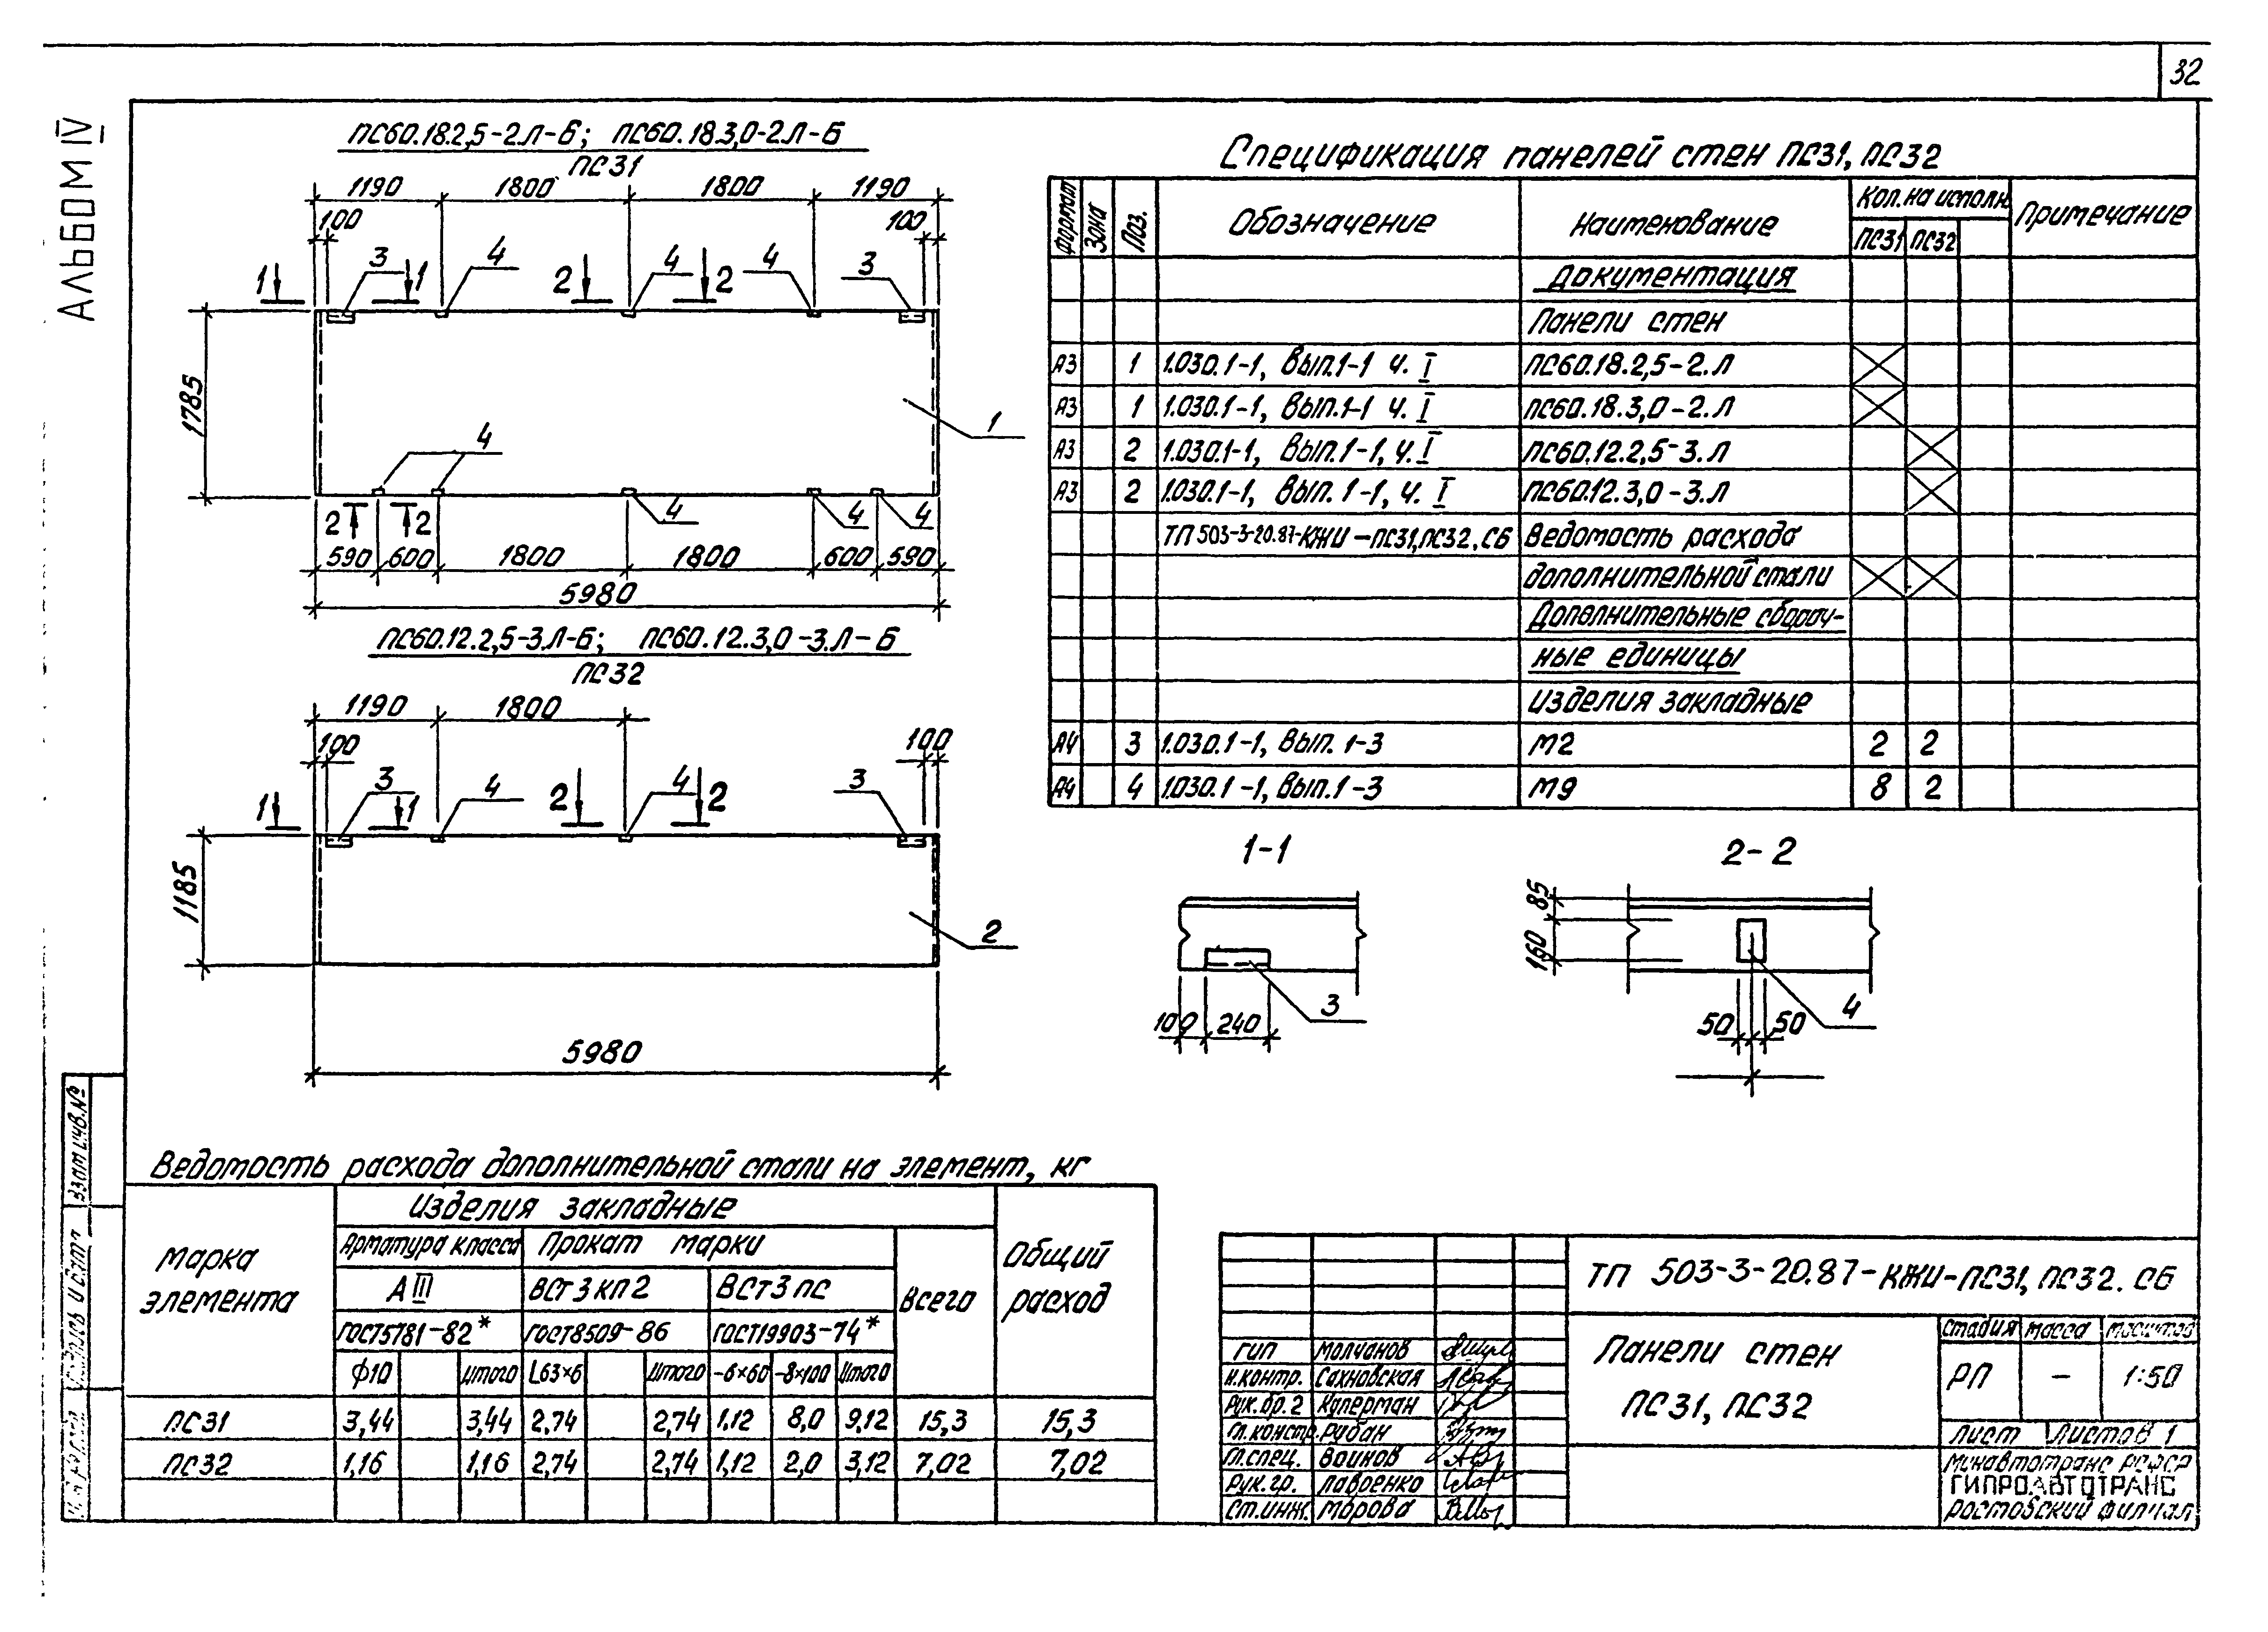 32
АЛЬБОМ IV
ПС60.18.2,5-2.Л-Б; ПС60.18.3,0-2.Л-Б
ПС31
1190 1800 1800 1190
100 100
3 4 4 4 3
1 1 2 2
1785
1
4
4 4 4
2 2
590 600 1800 1800 600 590
5980
ПС60.12.2,5-3.Л-Б; ПС60.12.3,0-3.Л-Б
ПС32
1190 1800
100 100
3 4 4 3
1 1 2 2
1185
2
5980
Спецификация панелей стен ПС31, ПС32
Формат Зона Поз. Обозначение Наименование Кол. на исполн. Примечание
ПС31 ПС32
Документация
Панели стен
А3 1 1.030.1-1, Вып.1-1 ч. I ПС60.18.2,5-2.Л
А3 1 1.030.1-1, Вып.1-1 ч. I ПС60.18.3,0-2.Л
А3 2 1.030.1-1, Вып.1-1, ч. I ПС60.12.2,5-3.Л
А3 2 1.030.1-1, Вып. 1-1, ч. I ПС60.12.3,0-3.Л
ТП 503-3-20.87-КЖИ-ПС31,ПС32.СБ Ведомость расхода
дополнительной стали
Дополнительные сбороч-
ные единицы
Изделия закладные
А4 3 1.030.1-1, Вып. 1-3 М2 2 2
А4 4 1.030.1-1, Вып.1-3 М9 8 2
1-1
3
100 240
2-2
85
160
4
50 50
Ведомость расхода дополнительной стали на элемент, кг
Марка элемента Изделия закладные Общий расход
Арматура класса Прокат марки Всего
А III ВСт3кп2 ВСт3пс
ГОСТ5781-82* ГОСТ8509-86 ГОСТ19903-74*
ф10 Итого L63×6 Итого -6×60 -8×100 Итого
ПС31 3,44 3,44 2,74 2,74 1,12 8,0 9,12 15,3 15,3
ПС32 1,16 1,16 2,74 2,74 1,12 2,0 3,12 7,02 7,02
Взам.инв.№
ТП 503-3-20.87-КЖИ-ПС31, ПС32.СБ
ГИП Молчанов
Н.контр. Сахновская
Рук.бр.2 Куперман
Гл.констр. Рубан
Гл.спец. Воинов
Рук.гр.
Ст.инж.
Панели стен
ПС31, ПС32
Стадия Масса Масштаб
РП - 1:50
Лист Листов 1
Минавтотранс РСФСР
ГИПРОАВТОТРАНС
Ростовский филиал